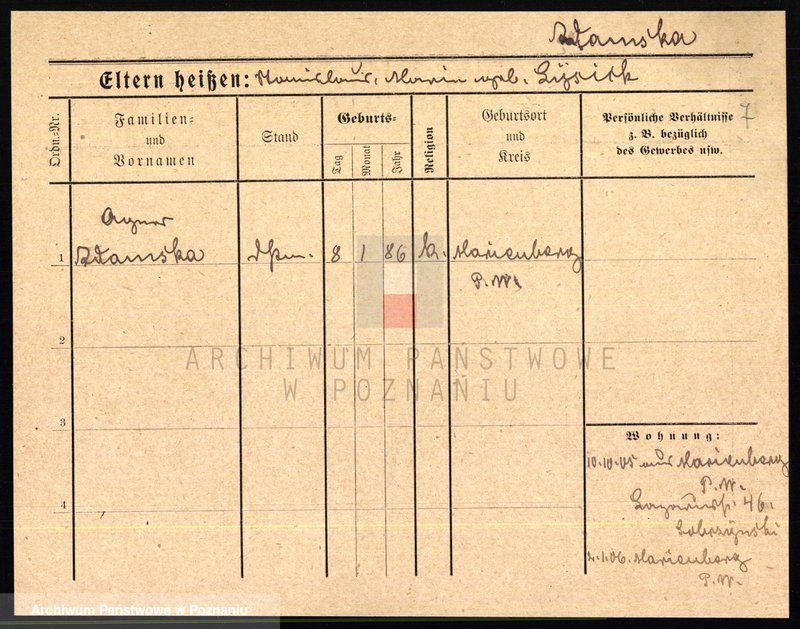 Adamska
Eltern heißen: Stanislaus, Maria geb.
7
Ordn.-Nr.
Familien- und Vornamen
Stand
Geburts-
Tag
Monat
Jahr
Religion
Geburtsort und Kreis
Persönliche Verhältnisse
z. B. bezüglich
des Gewerbes usw.
Agnes
1 Adamska 8 1 86 k. Marienberg
P. W.
2
ARCHIWUM PAŃSTWOWE
W POZNANIU
3
4
Wohnung:
10.10.05 aus Marienberg
P. W.
46.
2.1.06. Marienberg
P. W.
Archiwum Państwowe w Poznaniu